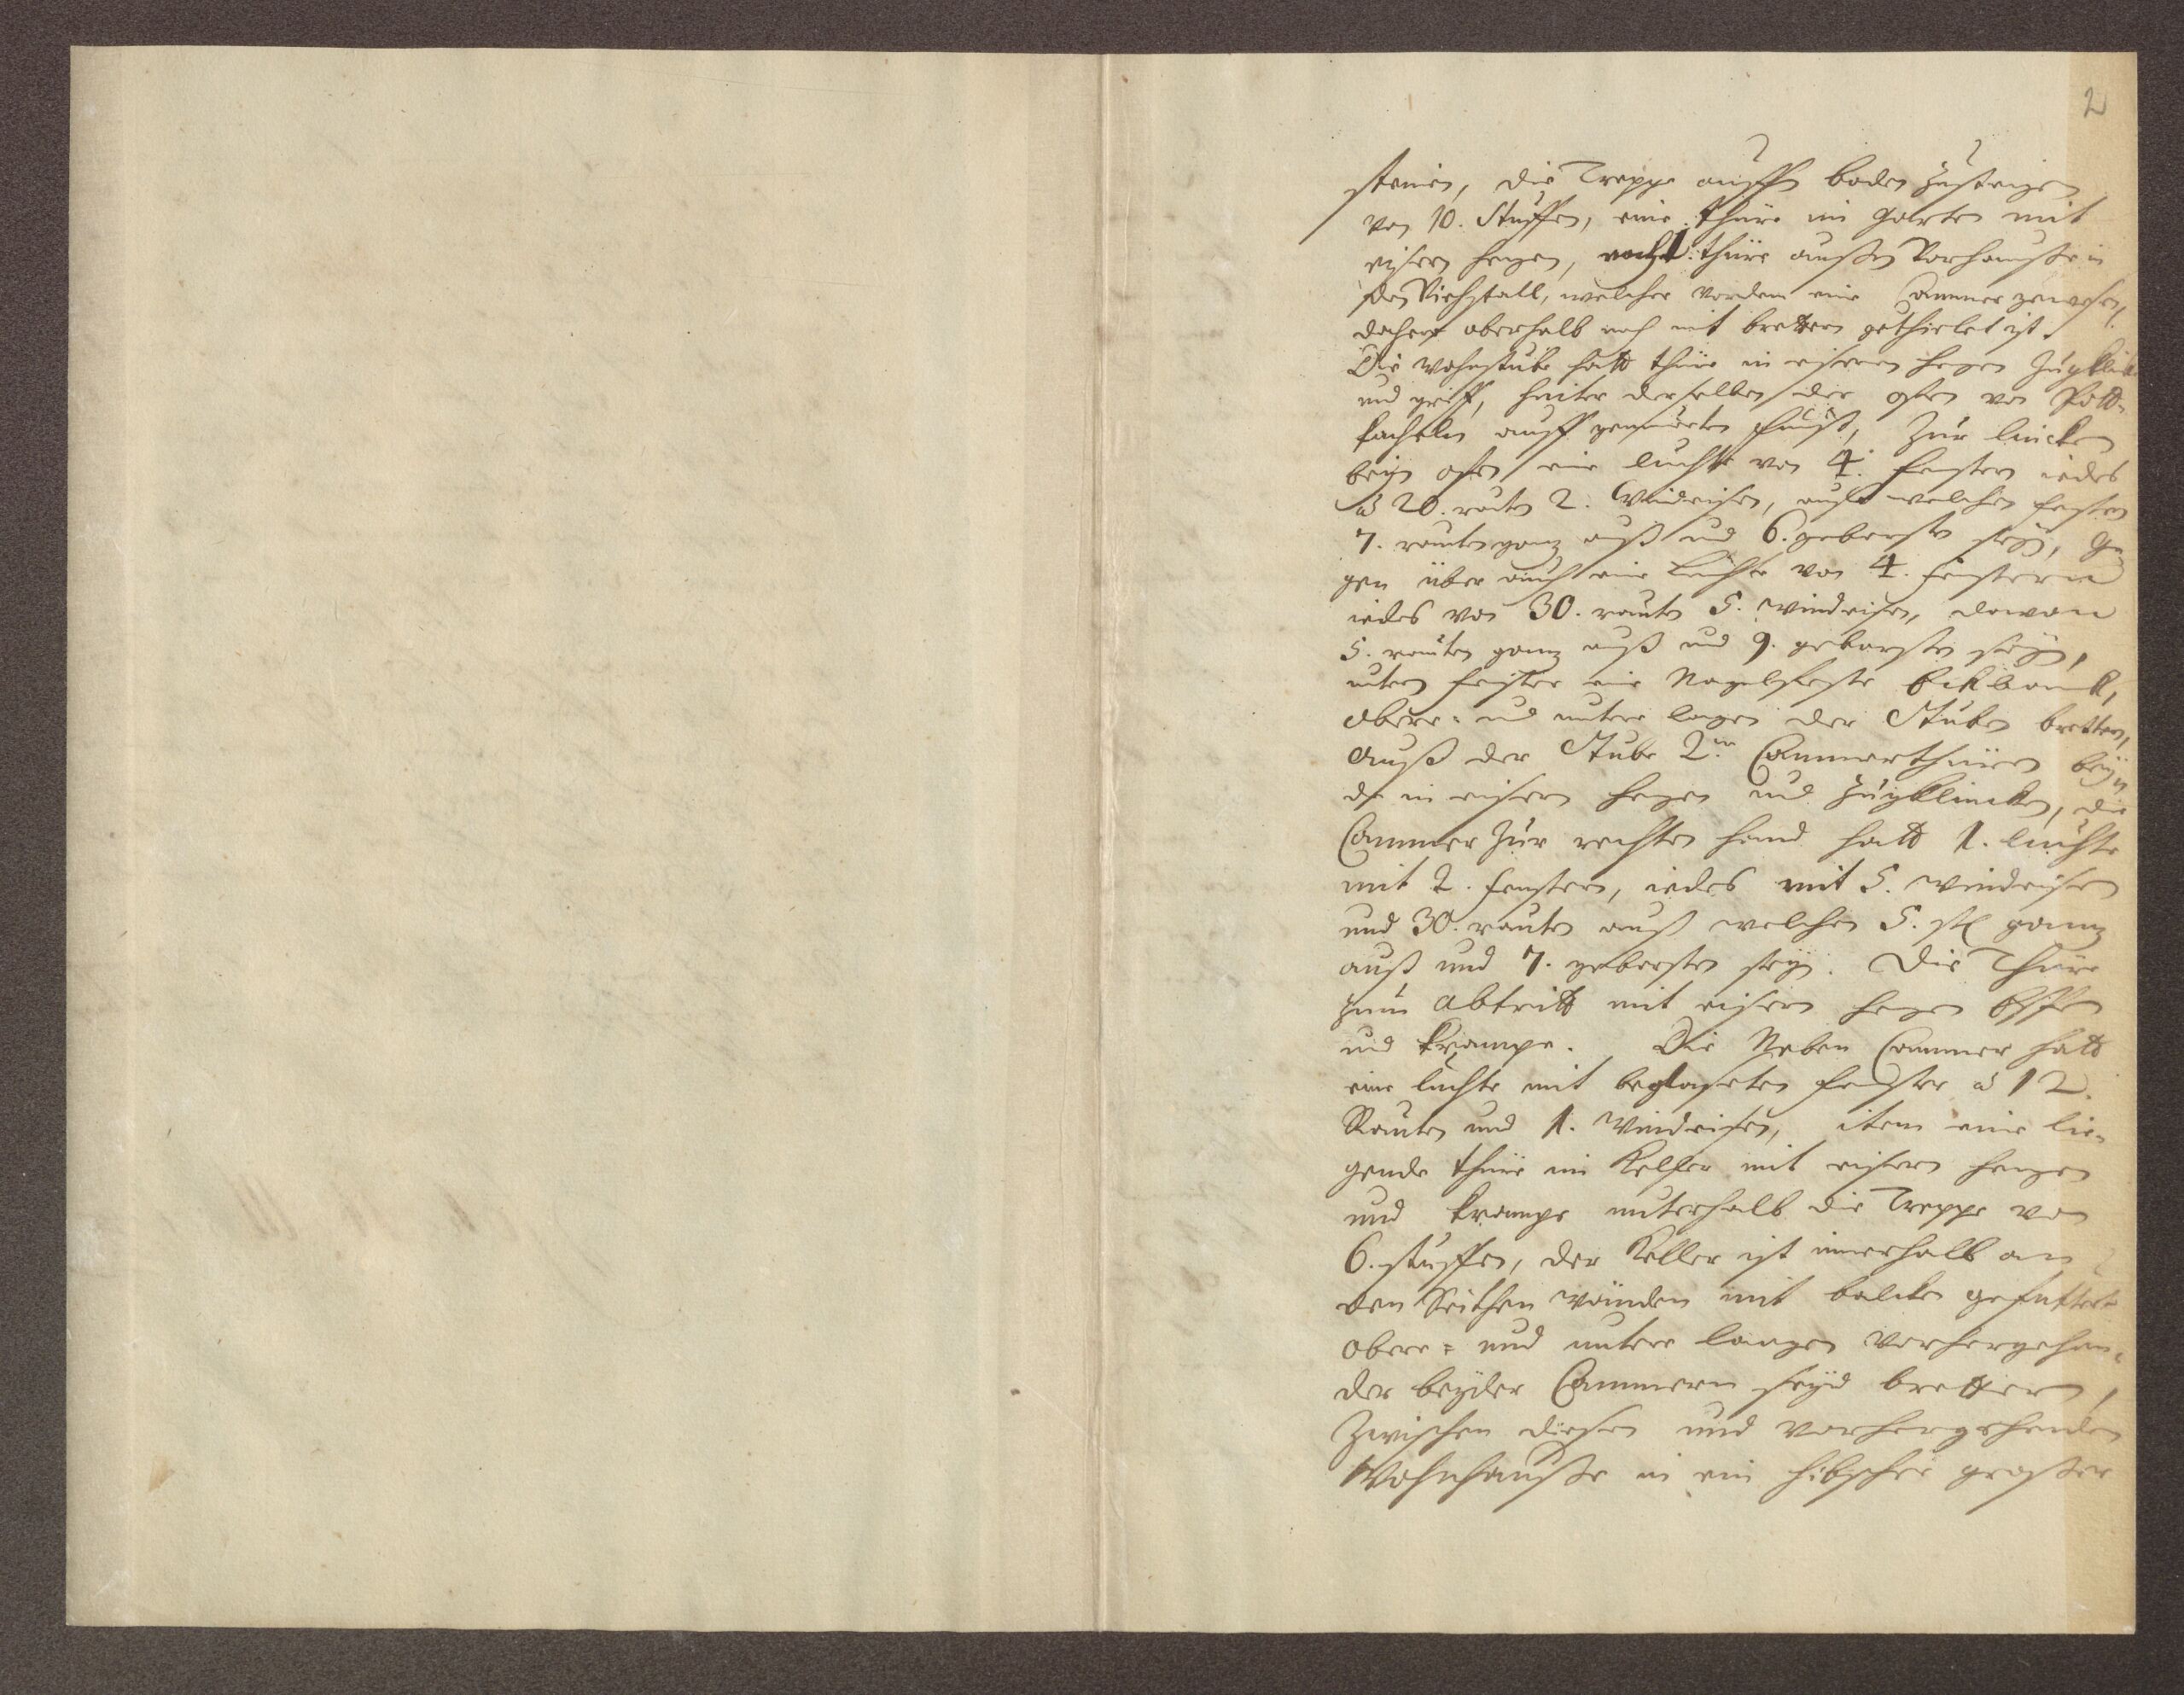 2
steinen, die Treppe auffn boden zusteigen
von 10. Stuffen, eine thüre im Garten mit
eisern hegen, noch 1. thüre außen Vorhauße in
den Viehstall, welcher vordem eine Cammer gewesen,
dahero oberhalb noch mit brettern gethielet ist.
Die wohnstube hatt thüre in eisernen hegen Zugklink
und griff, hinter derselben der ofen von Pott-
kacheln auff gemaurten fuß, Zur lincken
beym ofen eine luchte von 4. fenstern iedes
à 20. rauten 2. Windeisen, auß welchen fenstern
7. rauten ganz auß und 6. geborsten seyn, Ge-
gen über auch eine Luchte von 4. fenstern
iedes von 30. rauten 5. windeisen, davon
5. rauten ganz auß und 9. geborsten seyn,
untern fenster eine Nagelfeste Eckbanck,
obere- und untere lagen der Stuben brettern,
auß der Stube 2. Cammerthüren beyn
de in eisern hegen und Zugklincken, die
Cammer zur rechten hand hatt 1. luchte
mit 2. fenstern, iedes mit 5. windeisen
und 30. rauten auß welchen 5. st ganz
auß und 7. geborsten seyn. Die Thüre
zum Abtritt mit eisern hegen
und krampe. Die Neben Cammer hatt
eine luchte mit beglaseten fenster à 12.
Rauten und 1. Windeisen, item eine lie-
gende thüre im Keller mit eisern hegen
und krampe unterhalb die Treppe von
6. stuffen, der Keller ist innerhalb an
den Seithen wänden mit balcken gefuttert
obere- und untere laagen vorhergehen-
der beyder Cammern seynd brettern,
Zwischen diesen und vorhergehenden
Wohnhauße ein hibscher großer